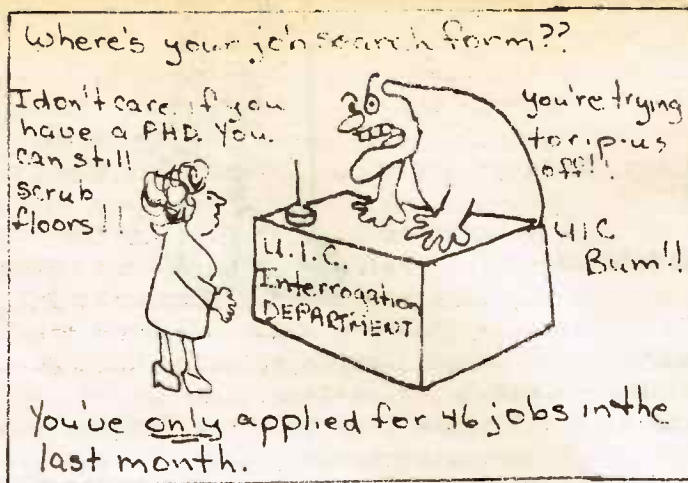 Where's your job search form??
I don't care if you
have a PHD. You
can still
scrub
floors!!
you're trying
to rip us
off!!
UIC
Bum!!
U.I.C.
Interrogation
DEPARTMENT
You've only applied for 46 jobs in the
last month.